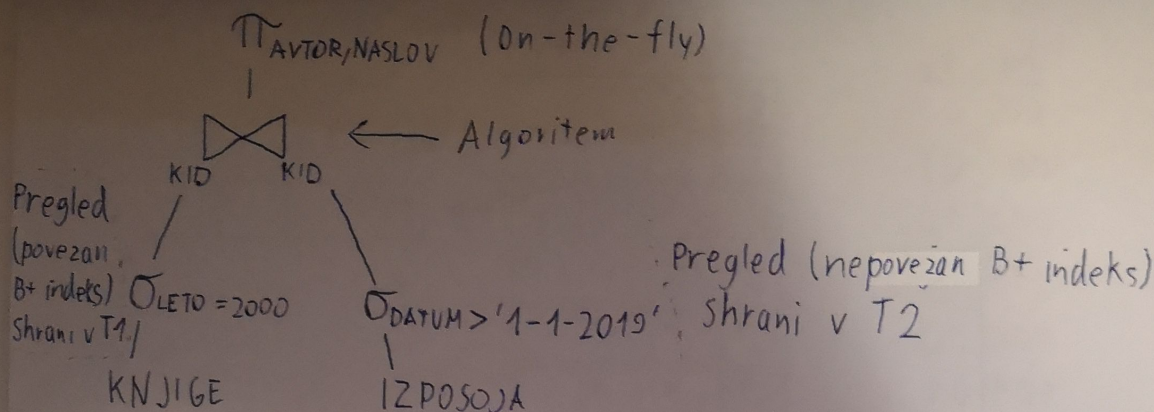 π AVTOR,NASLOV (on-the-fly)
← Algoritem
KID KID
Pregled
(povezan
B+ indeks)
Shrani v T1
σ LETO = 2000
σ DATUM > '1-1-2019'
Pregled (nepovezan B+ indeks)
Shrani v T2
KNJIGE
IZPOSOJA